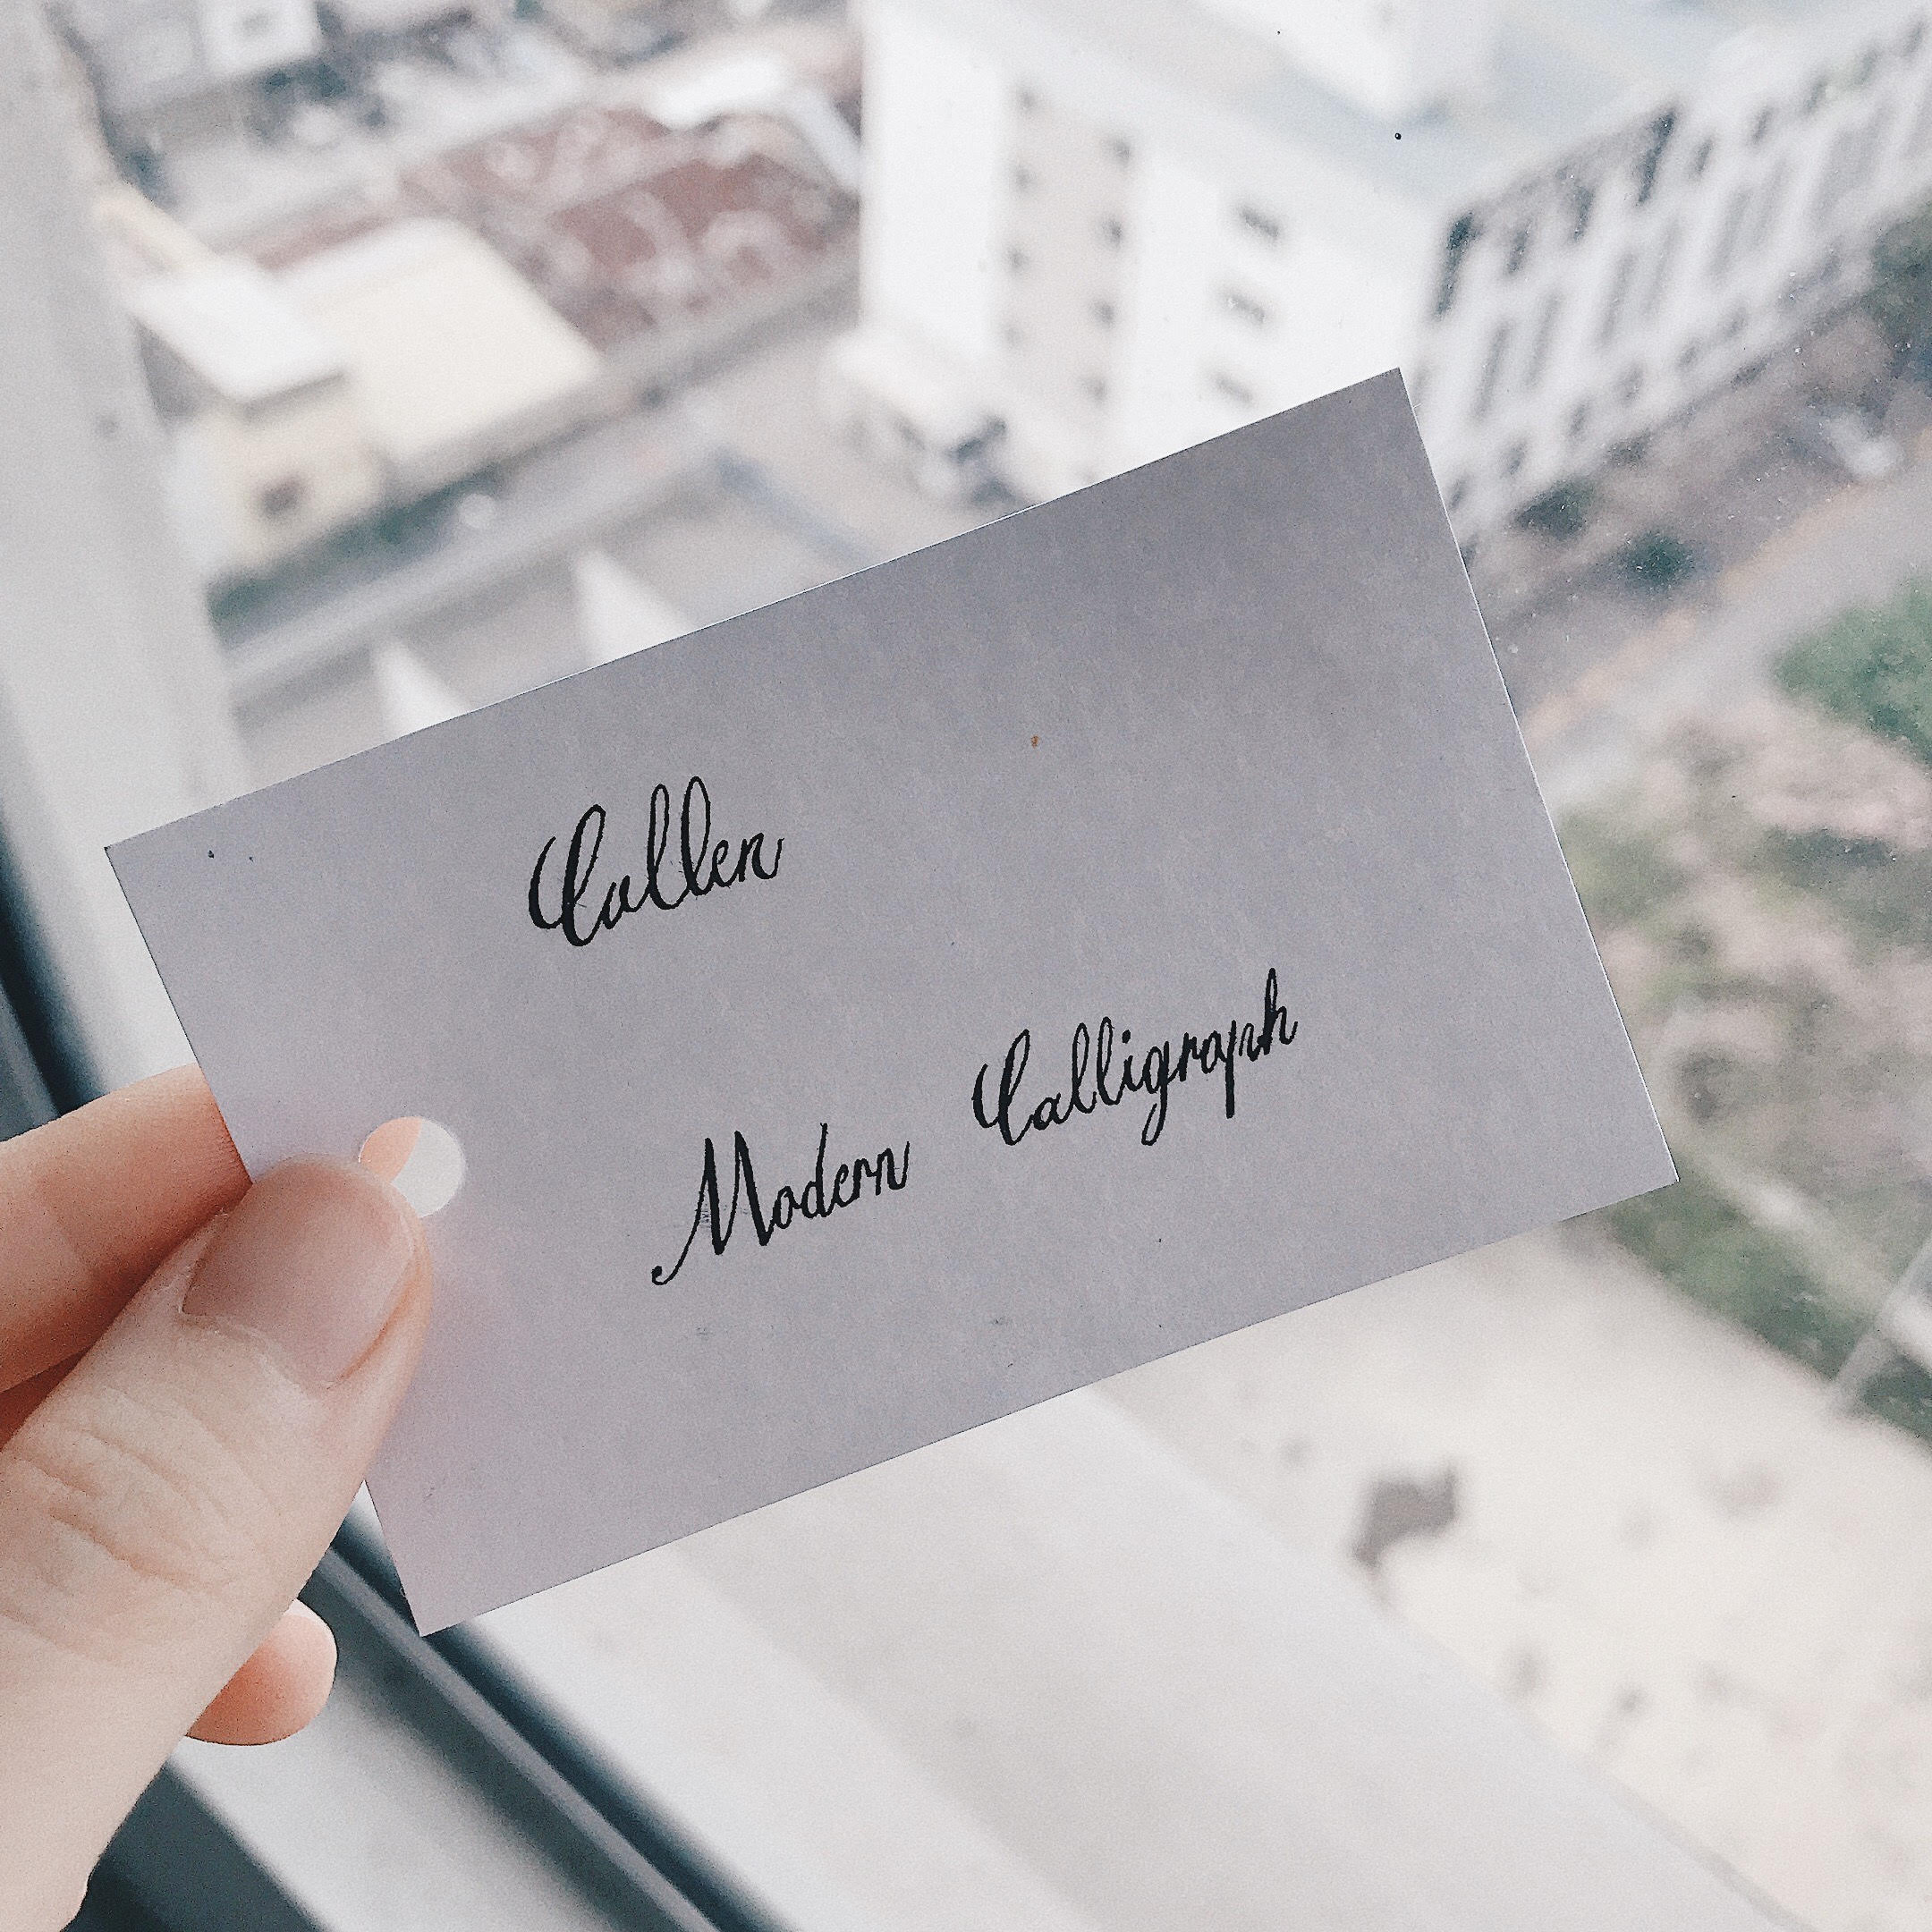 Cullen
Modern Calligraph